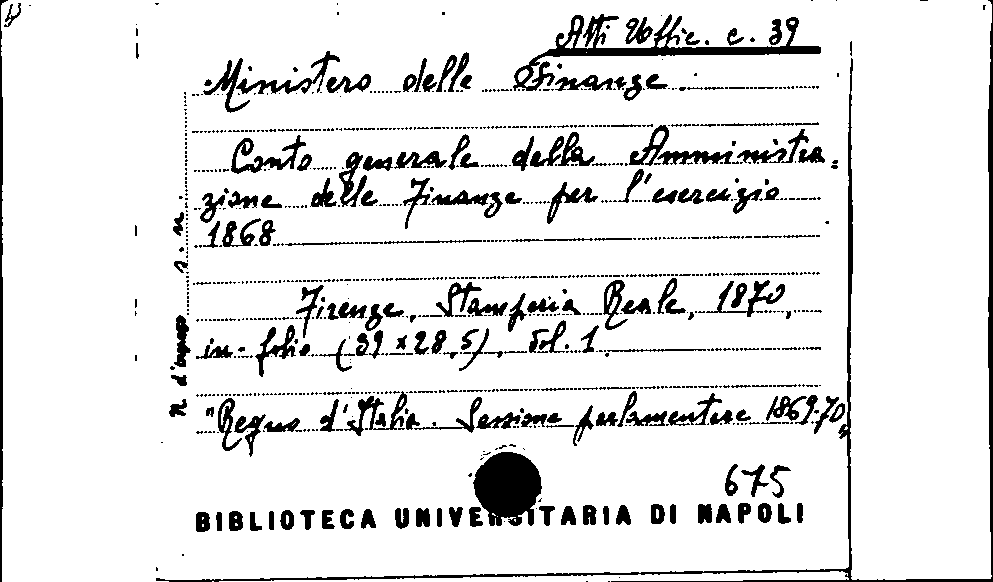 Atti Uffic. c. 39
Ministero delle Finanze.
Conto generale della Amministra=
zione delle Finanze per l'esercizio
1868
Firenze, Stamperia Reale, 1870,
in-folio (39 x 28,5), vol. 1.
"Regno d'Italia. Sessione parlamentare 1869-70"
N. d'ingresso s. n.
675
BIBLIOTECA UNIVERSITARIA DI NAPOLI